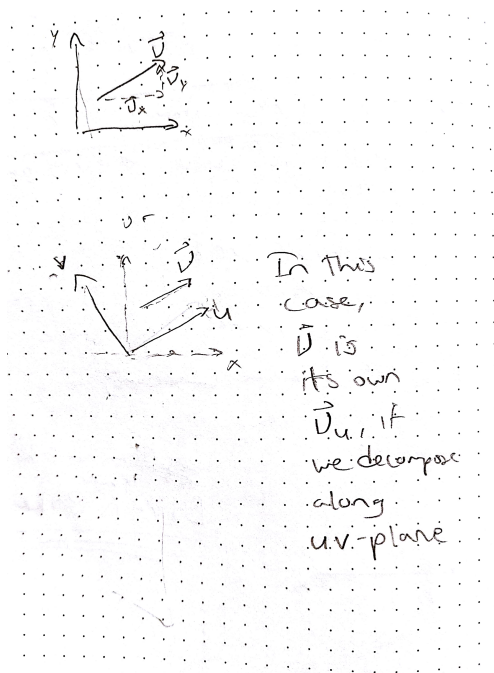 y
V⃗
V⃗y
V⃗x
x
v
V⃗
u
x
In this
case,
V⃗ is
it's own
V⃗u, if
we decompose
along
u.v.-plane